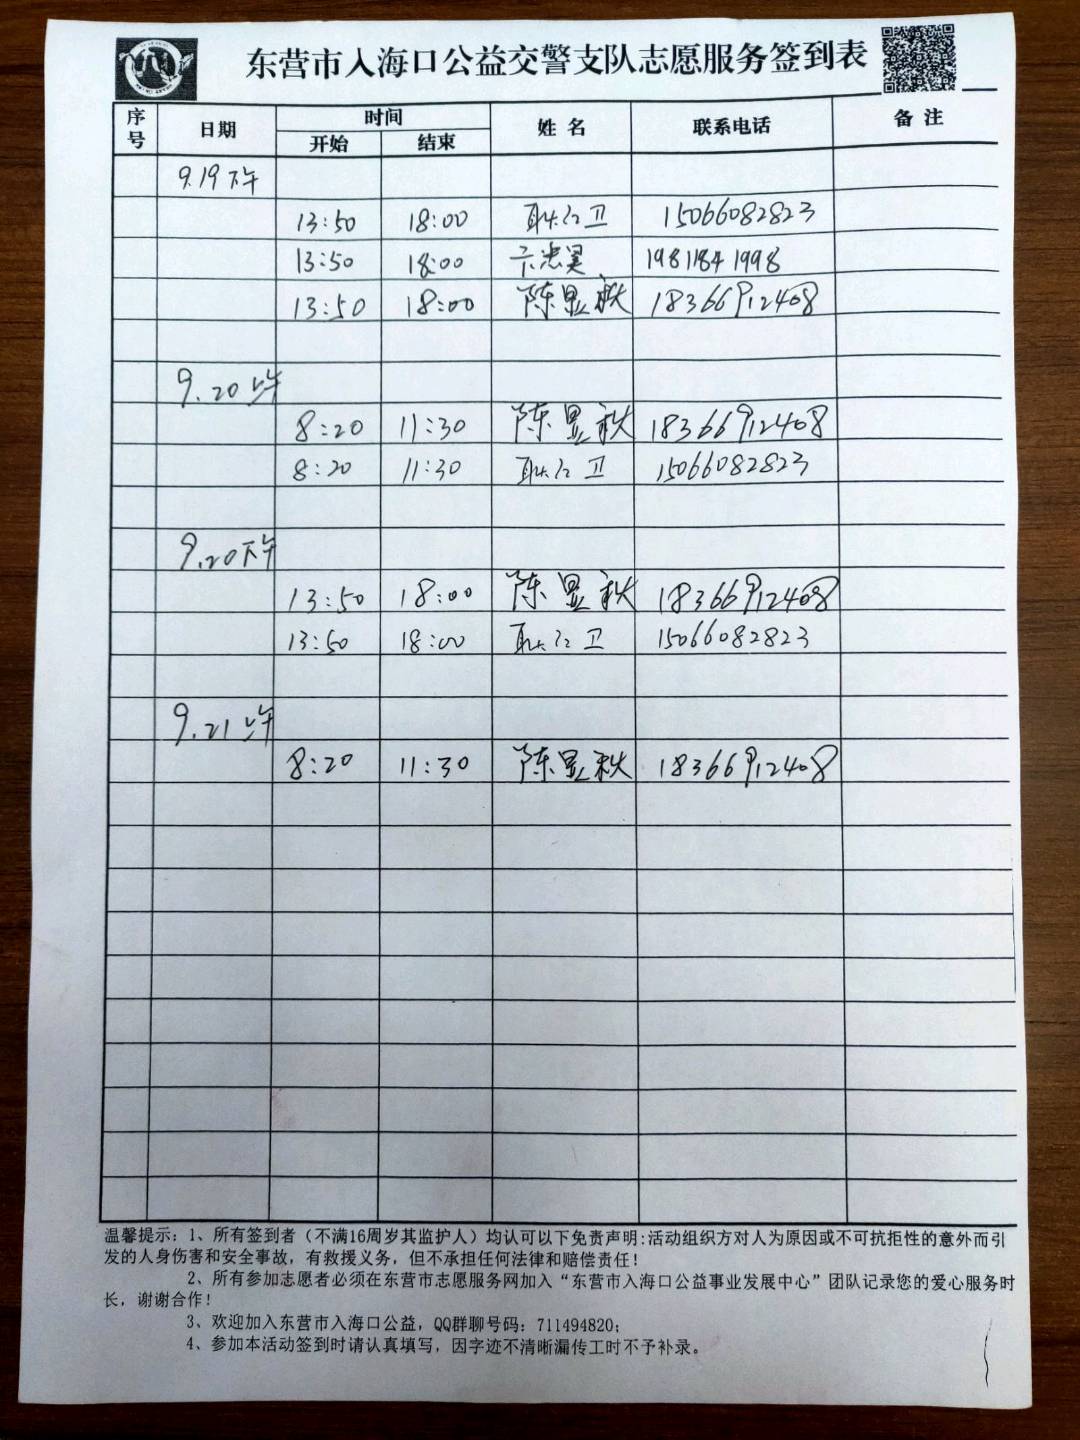 东营市入海口公益交警支队志愿服务签到表
序号 日期 时间 姓名 联系电话 备注
开始 结束
9.19下午
13:50 18:00 耿红卫 15066082823
13:50 18:00 19811841998
13:50 18:00 陈显秋 18366912408
9.20上午
8:20 11:30 陈显秋 18366912408
8:20 11:30 耿红卫 15066082823
9.20下午
13:50 18:00 陈显秋 18366912408
13:50 18:00 耿红卫 15066082823
9.21上午
8:20 11:30 陈显秋 18366912408
温馨提示:1、所有签到者(不满16周岁其监护人)均认可以下免责声明:活动组织方对人为原因或不可抗拒性的意外而引
发的人身伤害和安全事故,有救援义务,但不承担任何法律和赔偿责任!
2、所有参加志愿者必须在东营市志愿服务网加入“东营市入海口公益事业发展中心”团队记录您的爱心服务时
长,谢谢合作!
3、欢迎加入东营市入海口公益,QQ群聊号码:711494820;
4、参加本活动签到时请认真填写,因字迹不清晰漏传工时不予补录。